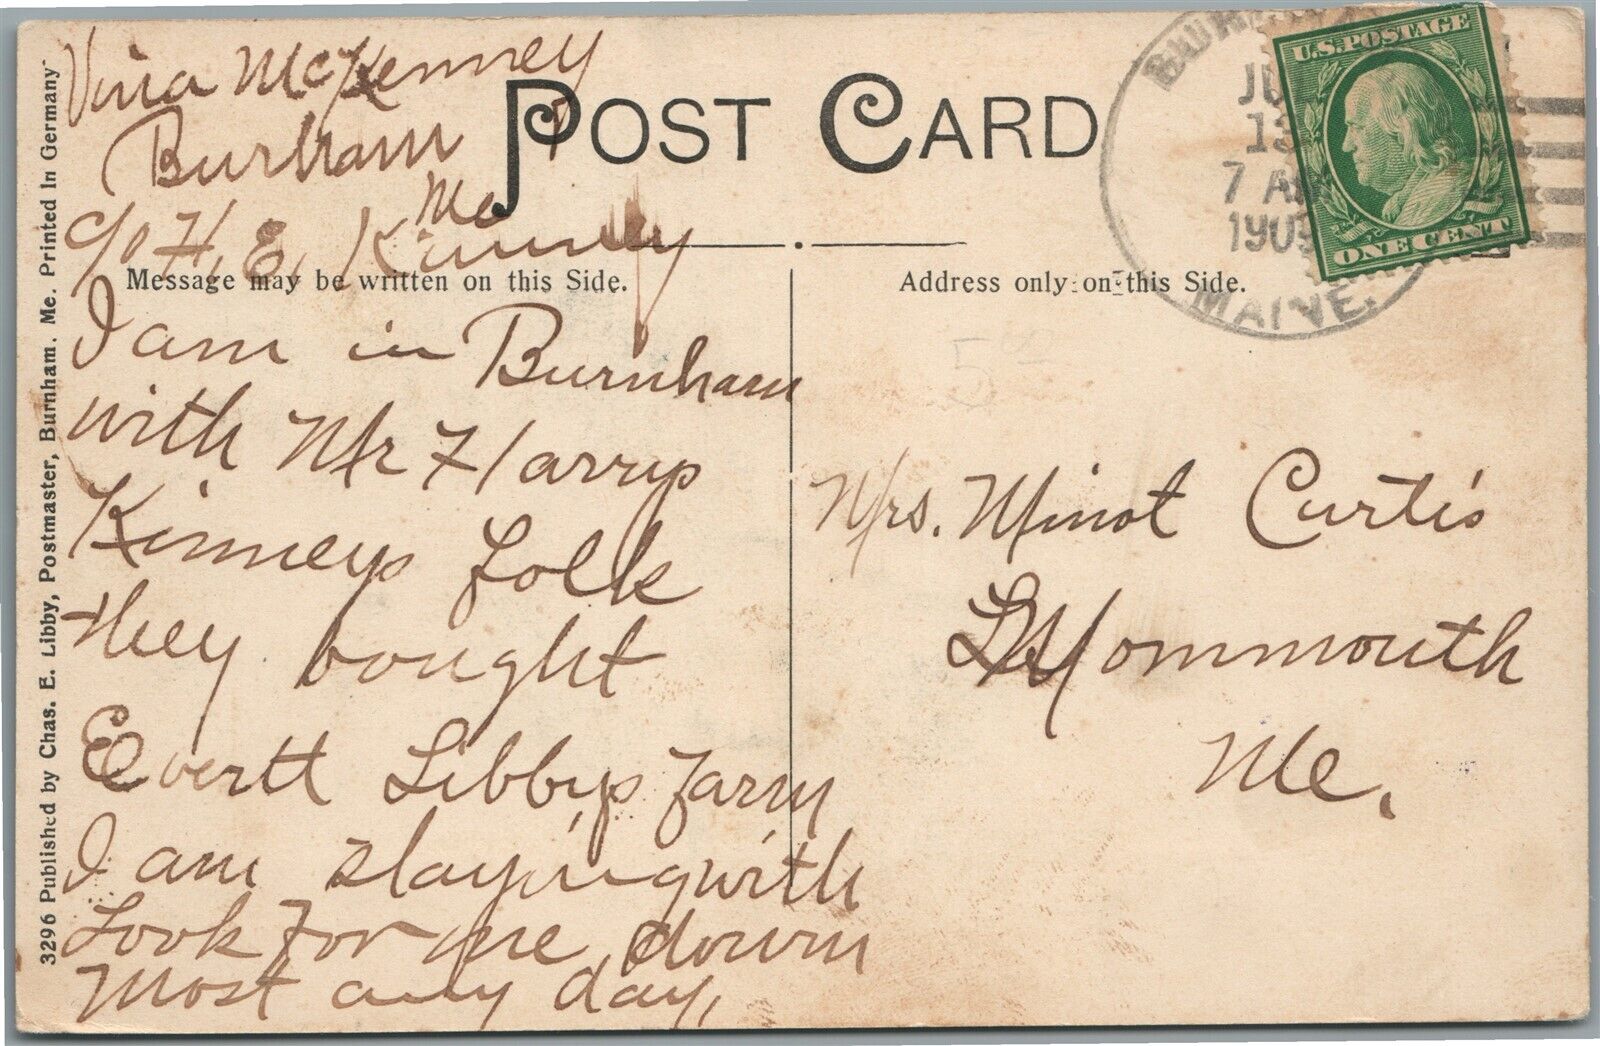 Vina McKenney
Burham
Me
c/o H. E. Kinney
POST CARD
Message may be written on this Side.
I am in Burnham
with Mr Harrys
Kinneys folk
they bought
Evertt Libbys farm
I am staying with
Look for me down
most any day,
3296 Published by Chas. E. Libby, Postmaster, Burnham. Me. Printed in Germany
Address only on this Side.
MAINE.
7 AM
U.S. POSTAGE
ONE CENT
5¢
Mrs. Minot Curtis
Monmouth
Me.